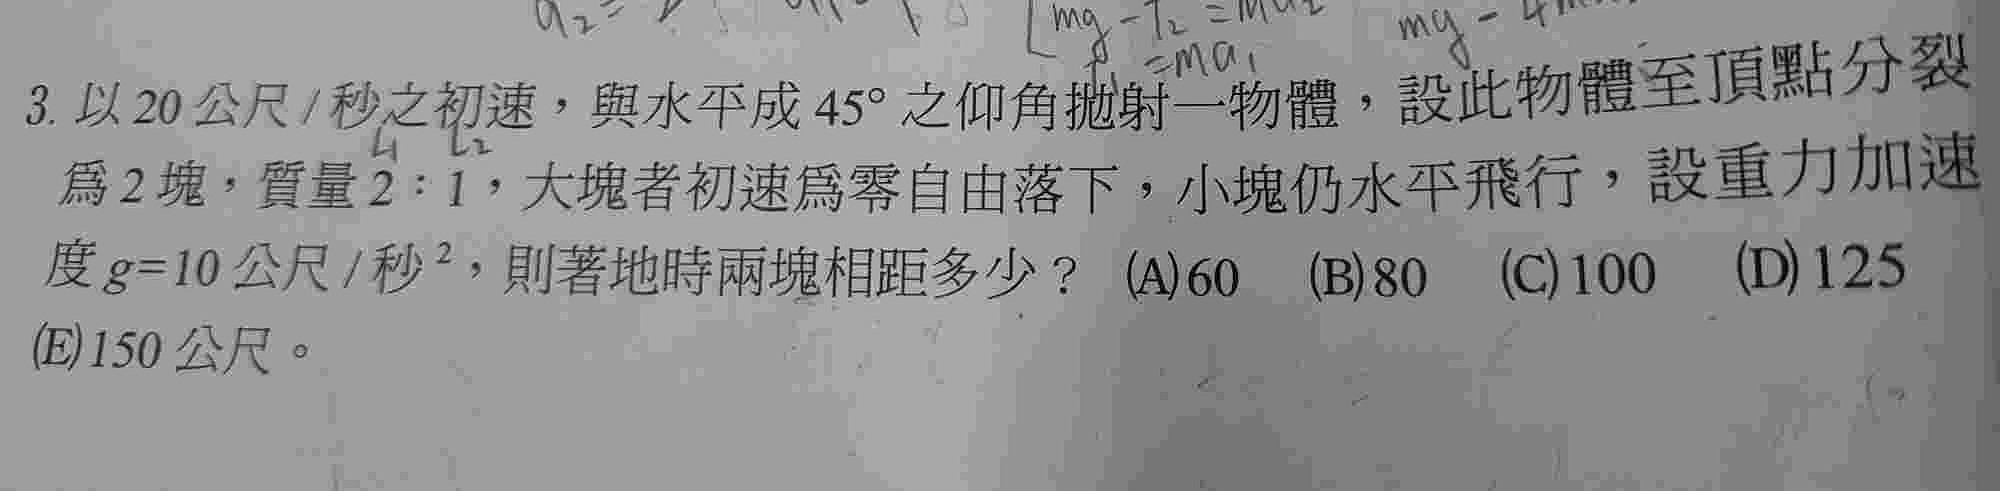 a₂=
[mg-T₂=Ma₂
=Ma₁
mg-4m
3. 以20公尺/秒之初速,與水平成45°之仰角拋射一物體,設此物體至頂點分裂
L₁ L₂
爲2塊,質量2:1,大塊者初速爲零自由落下,小塊仍水平飛行,設重力加速
度g=10公尺/秒²,則著地時兩塊相距多少? (A)60 (B)80 (C)100 (D)125
(E)150公尺。